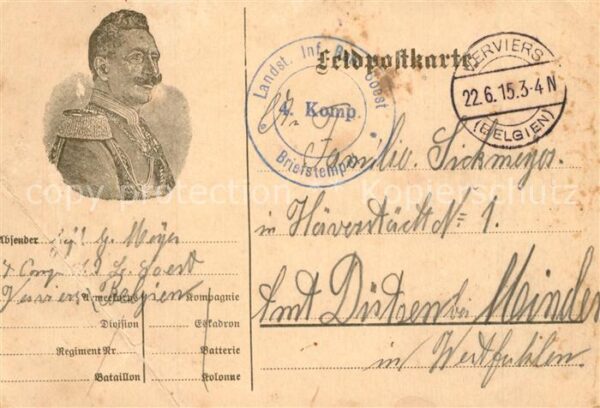 Feldpostkarte
Landst. Inf. Batl. Soest
4. Komp
Briefstempel
VERVIERS
22.6.15.3-4N
(BELGIEN)
Familie Sickmeyer.
in Häverstädt No 1.
Amt Dützen bei Minden
in Westfahlen.
Absender
G. Meyer
4 Comp
Soest
Verviers Belgien
Armeekorps
Kompagnie
Division
Eskadron
Regiment Nr
Batterie
Bataillon
Kolonne
copy protection Kopierschutz